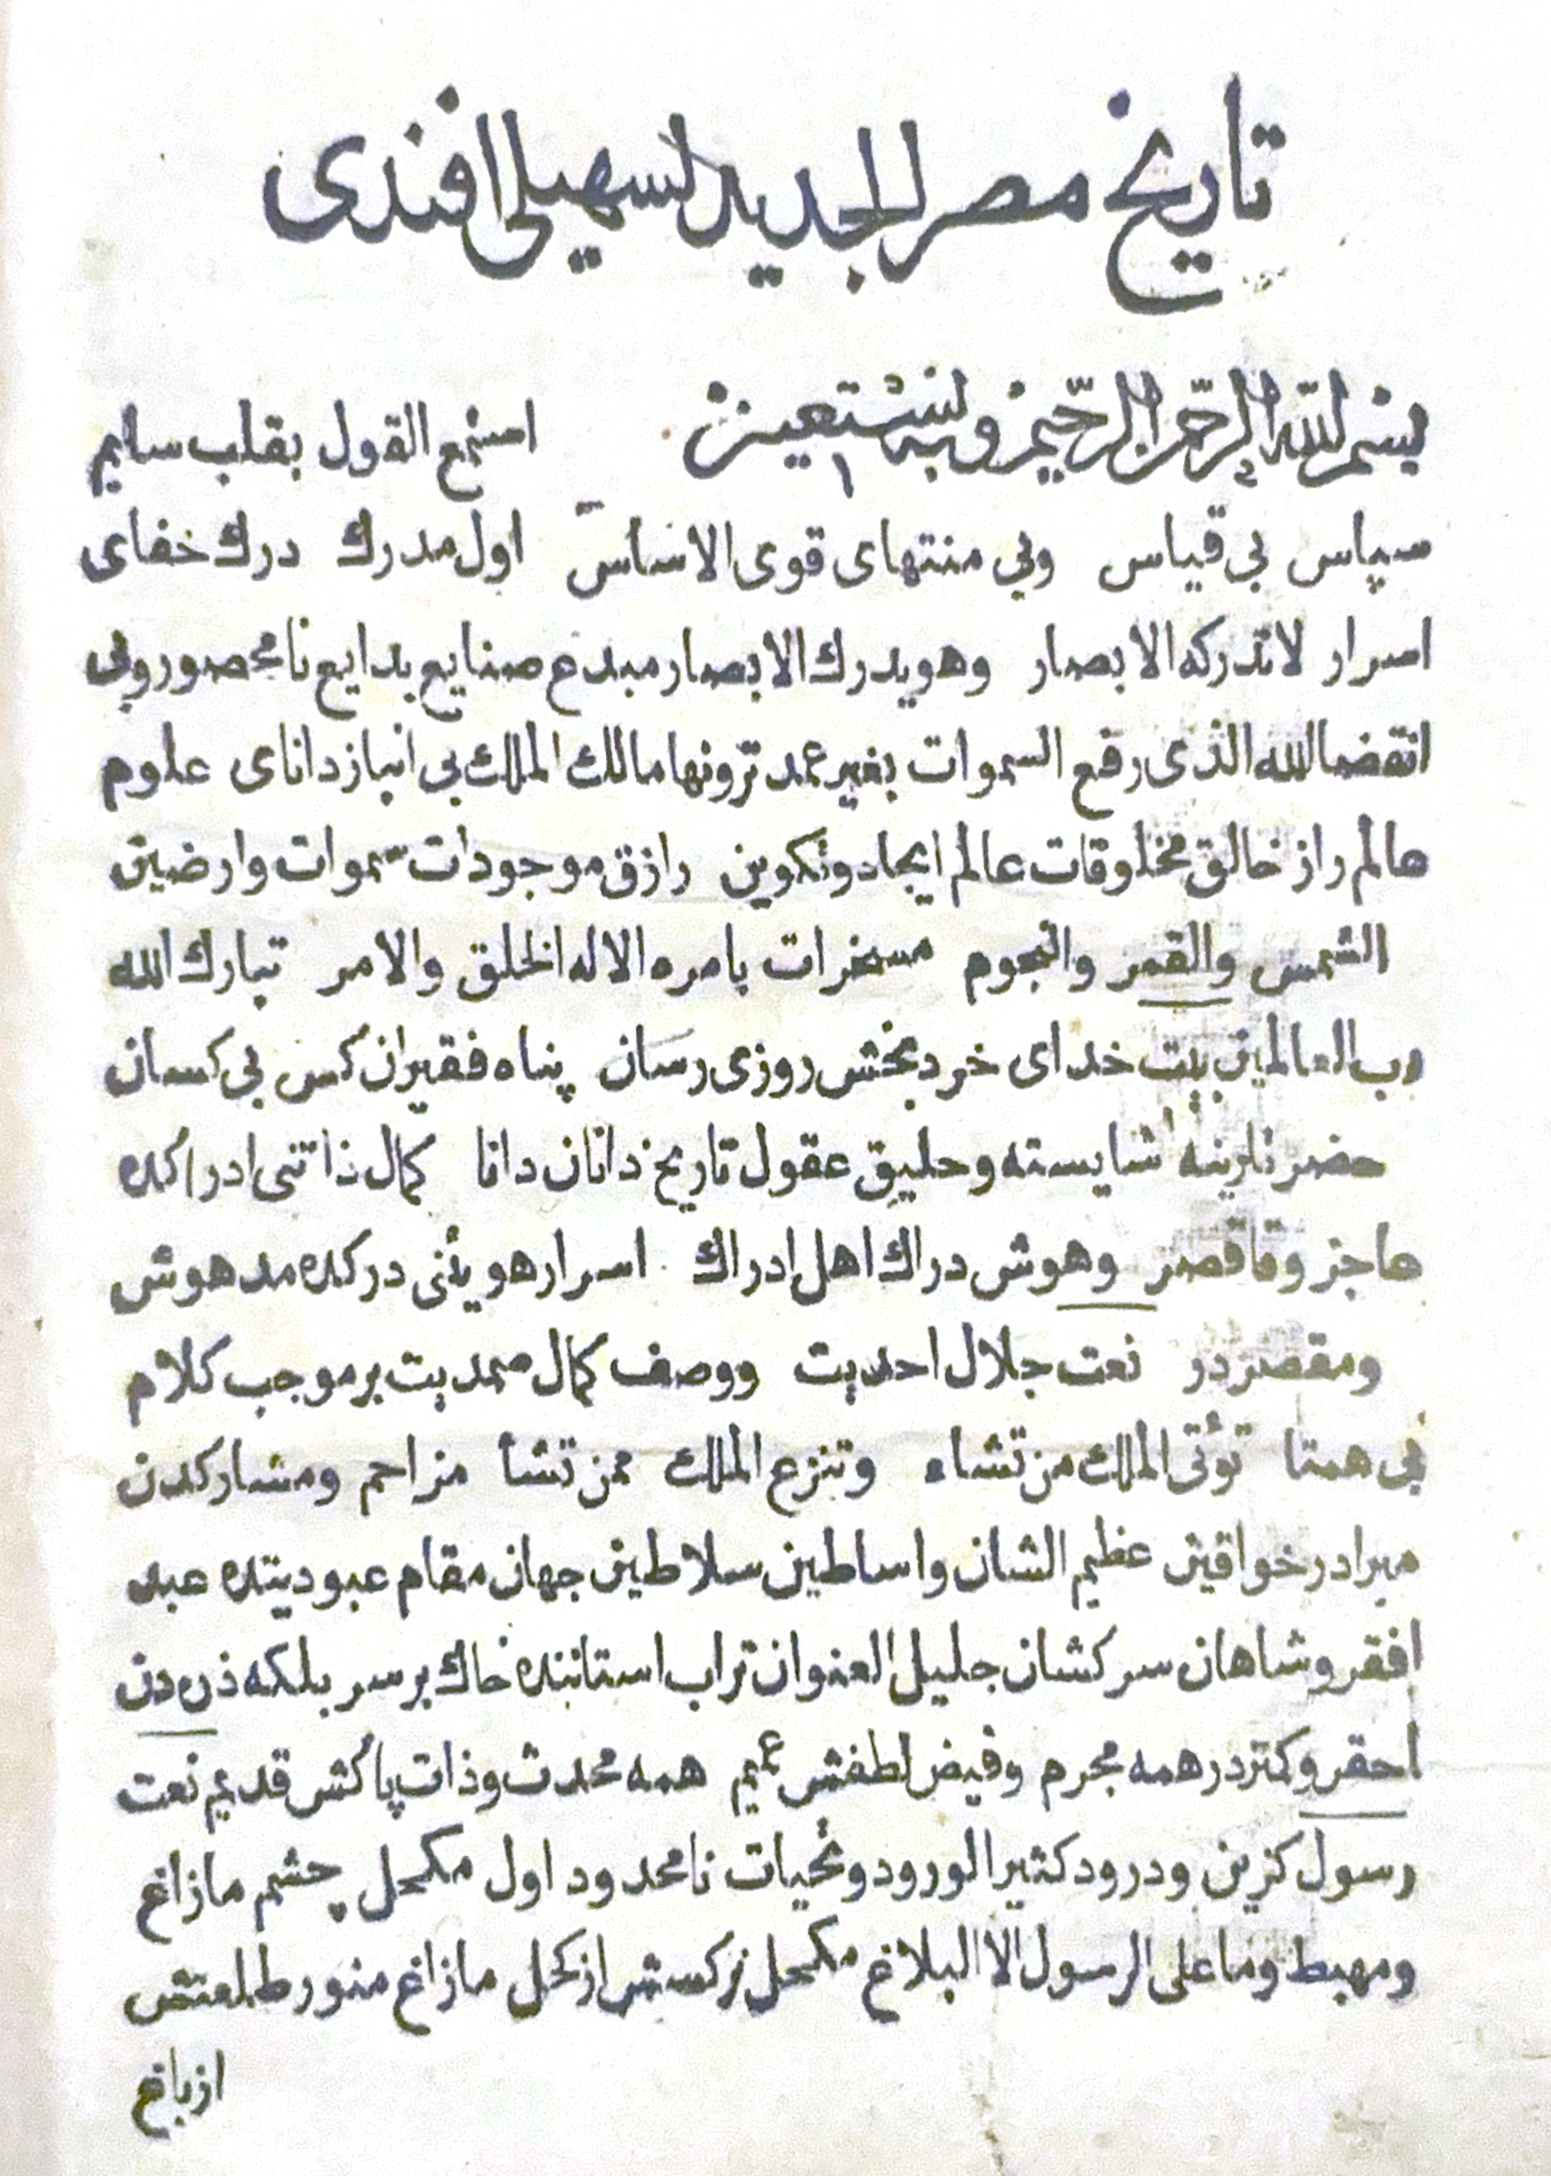 تاريخ مصر الجديد لسهيلى افندى
بسم الله الرحمن الرحيم وبه نستعين استمع القول بقلب سليم
سپاس بى قياس وبى منتهاى قوى الاساس اول مدرك درك خفاى
اسرار لاتدركه الابصار وهو يدرك الابصار مبدع صنايع بدايع نامحصور وبى
انقضا الله الذى رفع السموات بغير عمد ترونها مالك الملك بى انباز داناى علوم
عالم راز خالق مخلوقات عالم ايجاد وتكوين رازق موجودات سموات وارضين
الشمس والقمر والنجوم مسخرات بامره الا له الخلق والامر تبارك الله
رب العالمين بيت خداى خرد بخش روزى رسان پناه فقيران كس بى كسان
حضرتلرينه شايسته وحليق عقول تاريخ دانان دانا كمال ذاتنى ادراكده
عاجز وقاقصر وهوش دراك اهل ادراك اسرار هويتنى دركده مدهوش
ومقصردر نعت جلال احديت ووصف كمال صمديت بر موجب كلام
بى همتا تؤتى الملك من تشاء وتنزع الملك ممن تشأ مزاحم ومشاركدن
مبرادر خواقين عظيم الشان واساطين سلاطين جهان مقام عبوديتده عبد
افقر وشاهان سركشان جليل العنوان تراب استاننده خاك بر سر بلكه ذره دن
احقر وكمتردر همه مجرم وفيض لطفش عميم همه محدث وذات پاكش قديم نعت
رسول كزين ودرود كثير الورود وتحيات نامحدود اول مكحل چشم مازاغ
ومهبط وما على الرسول الا البلاغ مكحل نركسش از كحل مازاغ منور طلعتش
از باغ